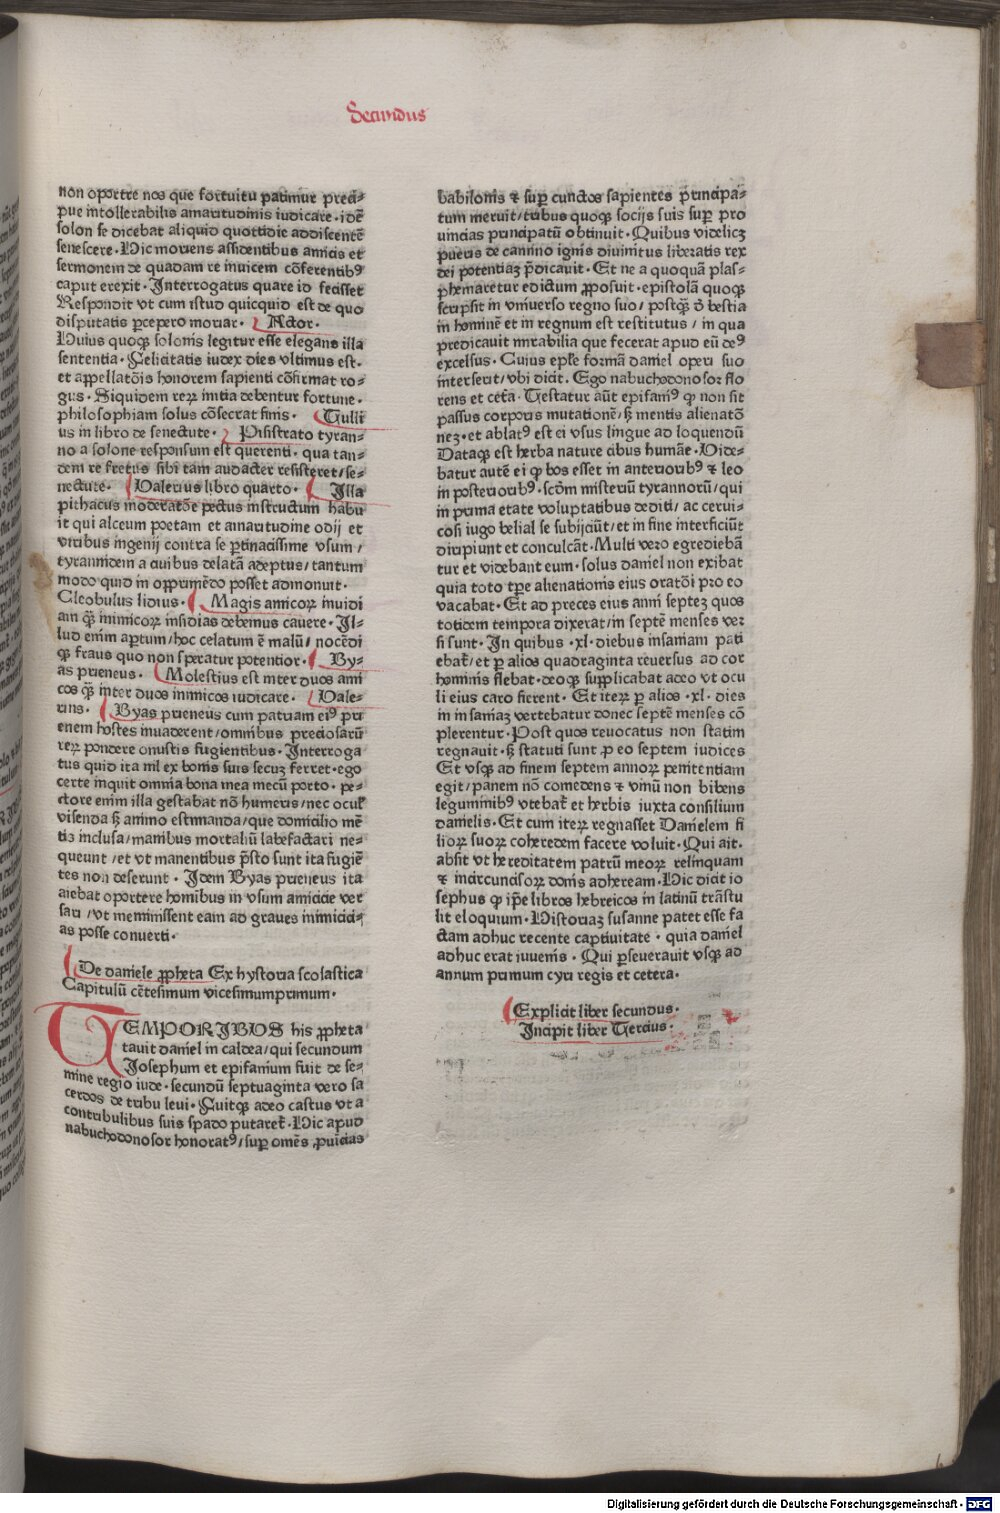 Secundus
non oportre nos que fortuitu patimur preci⸗
pue intollerabilis amaritudinis iudicare · idē
solon se dicebat aliquid quottidie addiscentē
senescere · Hic moriens assidentibus amicis et
sermonem de quadam re inuicem cōferentibꝰ
caput erexit · Interrogatus quare id fecisset
Respondit vt cum istud quicquid est de quo
disputatis ꝑcepero moriar · Actor ·
Huius quoqꝫ solonis legitur esse elegans illa
sententia · Felicitatis iudex dies vltimus est ·
et appellatōis honorem sapienti cōfirmat ro⸗
gus · Siquidem reꝝ initia debentur fortune ·
philosophiam solus cōsecrat finis · Tulli
us in libro de senectute · Pisistrato tyran⸗
no a solone responsum est querenti · qua tan⸗
dem re fretus sibi tam audacter resisteret / se⸗
nectute · Valerius libro quarto · Illa
pithacus moderatōe pectus instructum habu
it qui alceum poetam et amaritudine odij et
viribus ingenij contra se ꝑtinacissime vsum /
tyrannidem a ciuibus delatā adeptus / tantum
modo quid in opprimēdo posset admonuit ·
Cleobulus lidius · Magis amicoꝝ inuidi
am qꝫ̄ inimicoꝝ insidias debemus cauere · Il⸗
lud enim aꝑtum / hoc celatum ē malū / nocēdi
qꝫ fraus quo non speratur potentior · By⸗
as prieneus · Molestius est inter duos ami
cos qꝫ̄ inter duos inimicos iudicare · Vale⸗
rius · Byas prieneus cum patriam eiꝰ pri
enem hostes inuaderent / omnibus preciosarū
reꝝ pondere onustis fugientibus · Interroga
tus quid ita nil ex bonis suis secuꝫ ferret · ego
certe inquit omnia bona mea mecū porto · pe⸗
ctore enim illa gestabat nō humeris / nec oculꝭ
visenda sꝫ animo estimanda / que domicilio mē
tis inclusa / manibus mortaliū labefactari ne⸗
queunt / et vt manentibus p̄sto sunt ita fugiē
tes non deserunt · Idem Byas prieneus ita
aiebat oportere homibus in vsum amicicie ver
sari / vt meminissent eam ad graues inimicici⸗
as posse conuerti ·
De daniele ꝓpheta Ex hystoria scolastica
Capitulū cētesimum vicesimumprimum ·
TEMPORIBVS his ꝓpheta
tauit daniel in caldea / qui secundum
Josephum et epifanium fuit de se⸗
mine regio iude · secundū septuaginta vero sa
cerdos de tribu leui · Fuitqꝫ adeo castus vt a
contribulibus suis spado putaret̃ · Hic apud
nabuchodonosor honoratꝰ / suꝑ omēs ꝓuīcias
babilonis ⁊ suꝑ cunctos sapientes pͥncipa⸗
tum meruit / tribus quoqꝫ socijs suis suꝑ pro
uincias principatū obtinuit · Quibus videlicꝫ
pueris de camino ignis diuinitus liberatis rex
dei potentiaꝫ p̄dicauit · Et ne a quoquā plas⸗
phemaretur edictum ꝓposuit · epistolā quoqꝫ
scripsit in vniuerso regno suo / postqꝫ̄ d̄ bestia
in hominē et in regnum est restitutus / in qua
predicauit mirabilia que fecerat apud eū deꝰ
excelsus · Cuius epl̄e formā daniel operi suo
interserit / vbi dicit · Ego nabuchodonosor flo
rens et cet̃a · Testatur aūt epifaniꝰ ꝙ non sit
passus corporis mutationē / sꝫ mentis alienatō
neꝫ · et ablatꝰ est ei vsus lingue ad loquendū
Dataqꝫ est herba nature cibus humāe · Vide⸗
batur autē ei ꝙ bos esset in anteriorībꝰ ⁊ leo
in posteriorībꝰ · scd̄m misteriū tyrannorū / qui
in prima etate voluptatibus dediti / ac cerui⸗
cosi iugo belial se subijciūt / et in fine interficiūt
diripiunt et conculcāt · Multi vero egrediebā
tur et videbant eum · solus daniel non exibat
quia toto tꝑe alienationis eius oratōi pro eo
vacabat · Et ad preces eius anni septeꝫ quos
totidem tempora dixerat / in septē menses ver
si sunt · In quibus · xl · diebus insaniam pati
ebat̃ / et ꝑ alios quadraginta reuersus ad cor
hominis flebat · deoqꝫ supplicabat adeo vt ocu
li eius caro fierent · Et iteꝝ ꝑ alios · xl · dies
in insaniaꝫ vertebatur donec septē menses cō
plerentur · Post quos reuocatus non statim
regnauit · sꝫ statuti sunt ꝓ eo septem iudices
Et vsqꝫ ad finem septem annoꝝ penitentiam
egit / panem nō comedens ⁊ vinū non bibens
leguminibꝰ vtebat̃ et herbis iuxta consilium
danielis · Et cum iteꝝ regnasset Danielem fi
lioꝝ suoꝝ coheredem facere voluit · Qui ait ·
absit vt hereditatem patrū meoꝝ relinquam
⁊ incircunciſoꝝ donis adheream · Hic dicit io
sephus ꝙ ip̄e libros hebreicos in latinū trāstu
lit eloquium · Historiaꝫ susanne patet esse fa
ctam adhuc recente captiuitate · quia daniel
adhuc erat iuuenis · Qui ꝑseuerauit vsqꝫ ad
annum primum cyri regis et cetera ·
Explicit liber secundus ·
Incipit liber Tercius ·
Digitalisierung gefördert durch die Deutsche Forschungsgemeinschaft · DFG